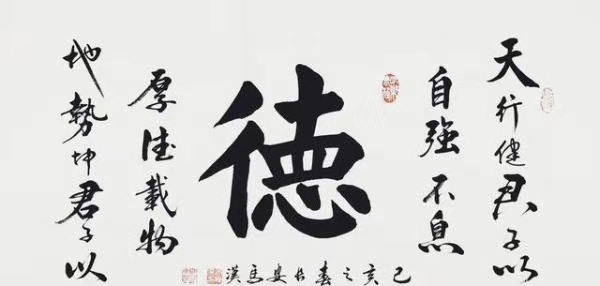 天行健君子以
自強不息
徳
地勢坤君子以
厚德載物
己亥之春